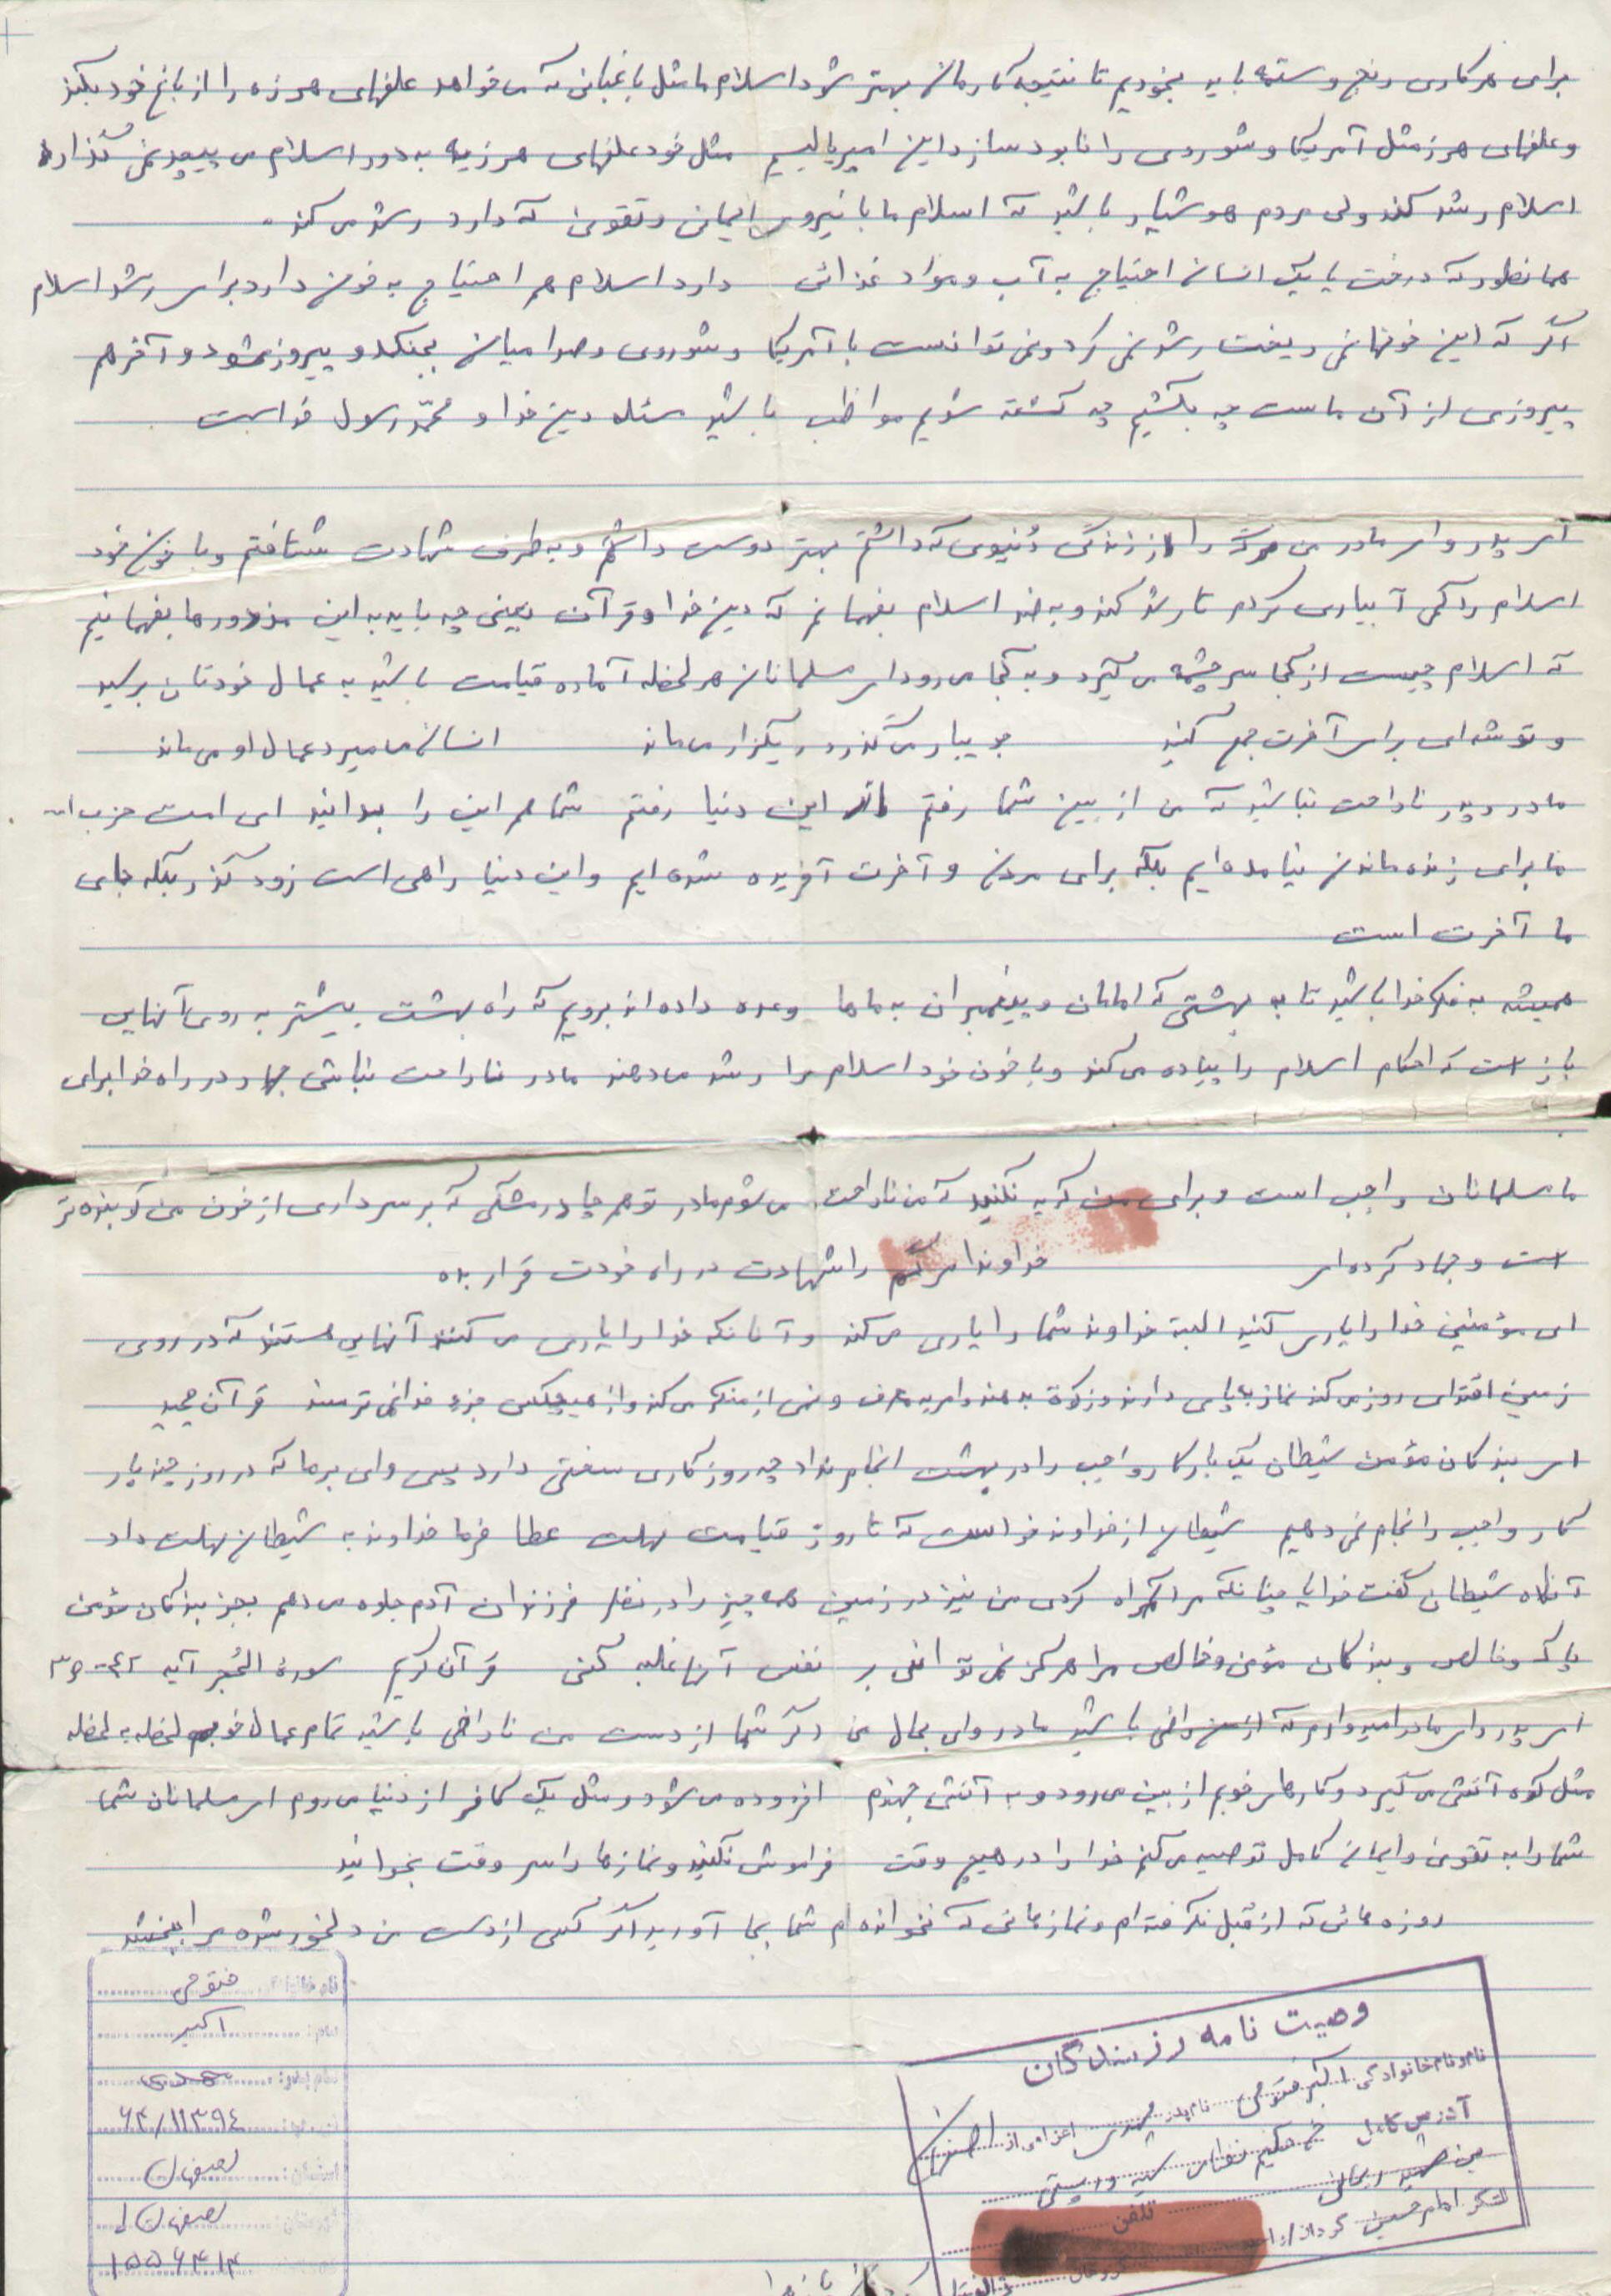 برای هر کاری رنج و ستم باید بخوریم تا نتیجه کارمان بهتر شود اسلام ما مثل باغبانی که می خواهد علفهای هرزه را از باغ خود بکند
و علفهای هرز مثل آمریکا و شوروی را نابود سازد این امپریالیسم مثل خود علفهای هرزیه به دور اسلام می پیچد نمی گذارد
اسلام رشد کند ولی مردم هوشیار باشید که اسلام ما با نیروی ایمانی و تقوی که دارد رشد می کند.
همانطور که درخت یا یک انسان احتیاج به آب و مواد غذائی دارد اسلام هم احتیاج به خون دارد برای رشد اسلام
اگر که این خونها نمی ریخت رشد نمی کرد و نمی توانست با آمریکا و شوروی و صدامیان بجنگد و پیروز شود و آخر هم
پیروزی از آن ماست چه بکشیم چه کشته شویم مواظب باشید مسئله دین خدا و محمد رسول خداست
ای پدر و ای مادر من مرگ را از زندگی دنیوی که داشتم بهتر دوست داشتم و به طرف شهادت شتافتم و با خون خود
اسلام را کمی آبیاری کردم تا رشد کند و به ضد اسلام بفهمانم که دین خدا و قرآن یعنی چه باید به این مزدورها بفهمانیم
که اسلام چیست از کجا سرچشمه می گیرد و به کجا می رود ای مسلمانان هر لحظه آماده قیامت باشید به عمال خودتان برسید
و توشه ای برای آخرت جمع کنید جویبار می گذرد ریگزار می ماند انسان ما میرد عمال او می ماند
مادر و پدر ناراحت نباشید که من از بین شما رفتم از این دنیا رفتم شما هم این را بدانید ای امت حزب اله
ما برای زنده ماندن نیامده ایم بلکه برای مردن و آخرت آفریده شده ایم و این دنیا راهی است زود گذر بلکه جای
ما آخرت است
همیشه به فکر خدا باشید تا به بهشتی که امامان و پیغمبران به ماها وعده داده اند برویم که راه بهشت بیشتر به روی آنهایی
باز است که احکام اسلام را پیاده می کند و با خون خود اسلام را رشد می دهند مادر ناراحت نباشی جهاد در راه خدا برای
ما مسلمانان واجب است و برای من گریه نکنید که من ناراحت می شوم مادر تو هم چادر مشکی که بر سر داری از خون من کوبنده تر
است و جهاد کرده ای خداوندا مرگم را شهادت در راه خودت قرار بده
ای مؤمنین خدا را یاری کنید البته خداوند شما را یاری می کند و آنانکه خدا را یاری می کنند آنهایی هستند که در روی
زمین اقتدای روز می کند نماز بپای دارند و زکوة بدهند و امر به معروف و نهی از منکر می کند و از هیچکس جزء خدا نمی ترسند قرآن مجید
ای بندگان مؤمن شیطان یک بار کار واجب را در بهشت انجام نداد چه روزگاری سختی دارد پس وای بر ما که در روز چند بار
کار واجب را انجام نمی دهیم شیطان از خداوند خواست که تا روز قیامت مهلت عطا فرما خداوند به شیطان مهلت داد
آنگاه شیطان گفت خدایا چنانکه مرا گمراه کردی من نیز در زمین همه چیز را در نظر فرزندان آدم جلوه می دهم بجز بندگان مؤمن
پاک و خالص و بندگان مؤمن و خالص مرا هرگز نمی توانی بر نفس آنها غلبه کنی قرآن کریم سورة الحجر آیه ۴۲-۳۵
ای پدر و ای مادر امیدوارم که از من راضی باشید مادر وای بحال من اگر شما از دست من ناراضی باشید تمام عمال خوبم لحظه به لحظه
مثل کوه آتش می گیرد و کارهای خوبم از بین می رود و به آتش جهنم افزوده می شود و مثل یک کافر از دنیا می روم ای مسلمانان شما
شما را به تقوی و ایمان کامل توصیه می کنم خدا را در هیچ وقت فراموش نکنید و نمازها را سر وقت بخوانید
روزه هائی که از قبل نگرفته ام و نمازهائی که نخوانده ام شما بجا آورید اگر کسی از دست من دلخور شده مرا ببخشد
نام خانوادگی: فتوحی
نام: اکبر
نام پدر: مهدی
۶۳/۱۱۳۹۴
استان: اصفهان
شهرستان: اصفهان
۱۵۵۶۴۱۴
وصیت نامه رزمندگان
نام و نام خانوادگی اکبر فتوحی نام پدر مهدی اعزامی از اصفهان
آدرس کامل خ حکیم نظامی
تلفن
لشکر امام حسین گردان